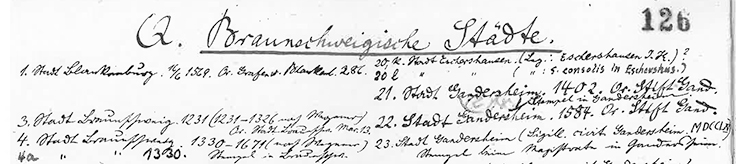 126
Q. Braunschweigische Städte.
1. Stadt Blankenburg. 1569. Or. Grafsch. Blankenb. 286.
3. Stadt Braunschweig. 1231 (1231-1326 nach Wegener)
Or. Stadt Braunschw. Mar. 13.
4. Stadt Braunschweig. 1330-1671 (nach Wegener)
4a " " 1330. Stempel in Braunschw.
20, K. Stadt Eschershausen. (Leg.: Eschershausen J.K.) ?
20 b " " ( " : S. consolis in Eschershus.)
21. Stadt Gandersheim. 1402. Or. Stift Gand.
Stempel in Gandersheim
22. Stadt Gandersheim. 1584. Or. Stift Gand.
23. Stadt Gandersheim (Sigill. civit. Gandersheim. MDCCLX)
Stempel beim Magistrate in Gandersheim.